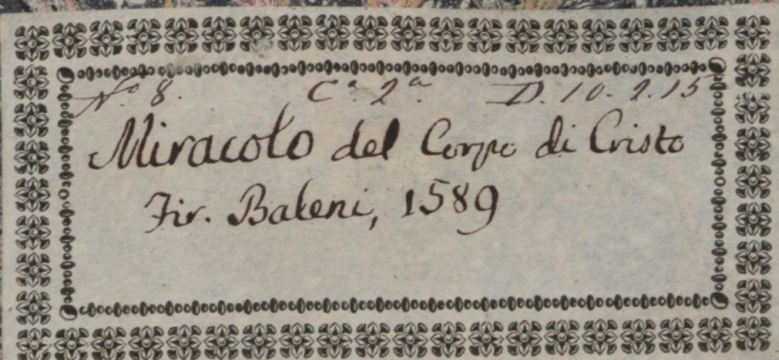 Nº 8. Cª 2ª D. 10. 2. 15
Miracolo del Corpo di Cristo
Fir. Baleni, 1589